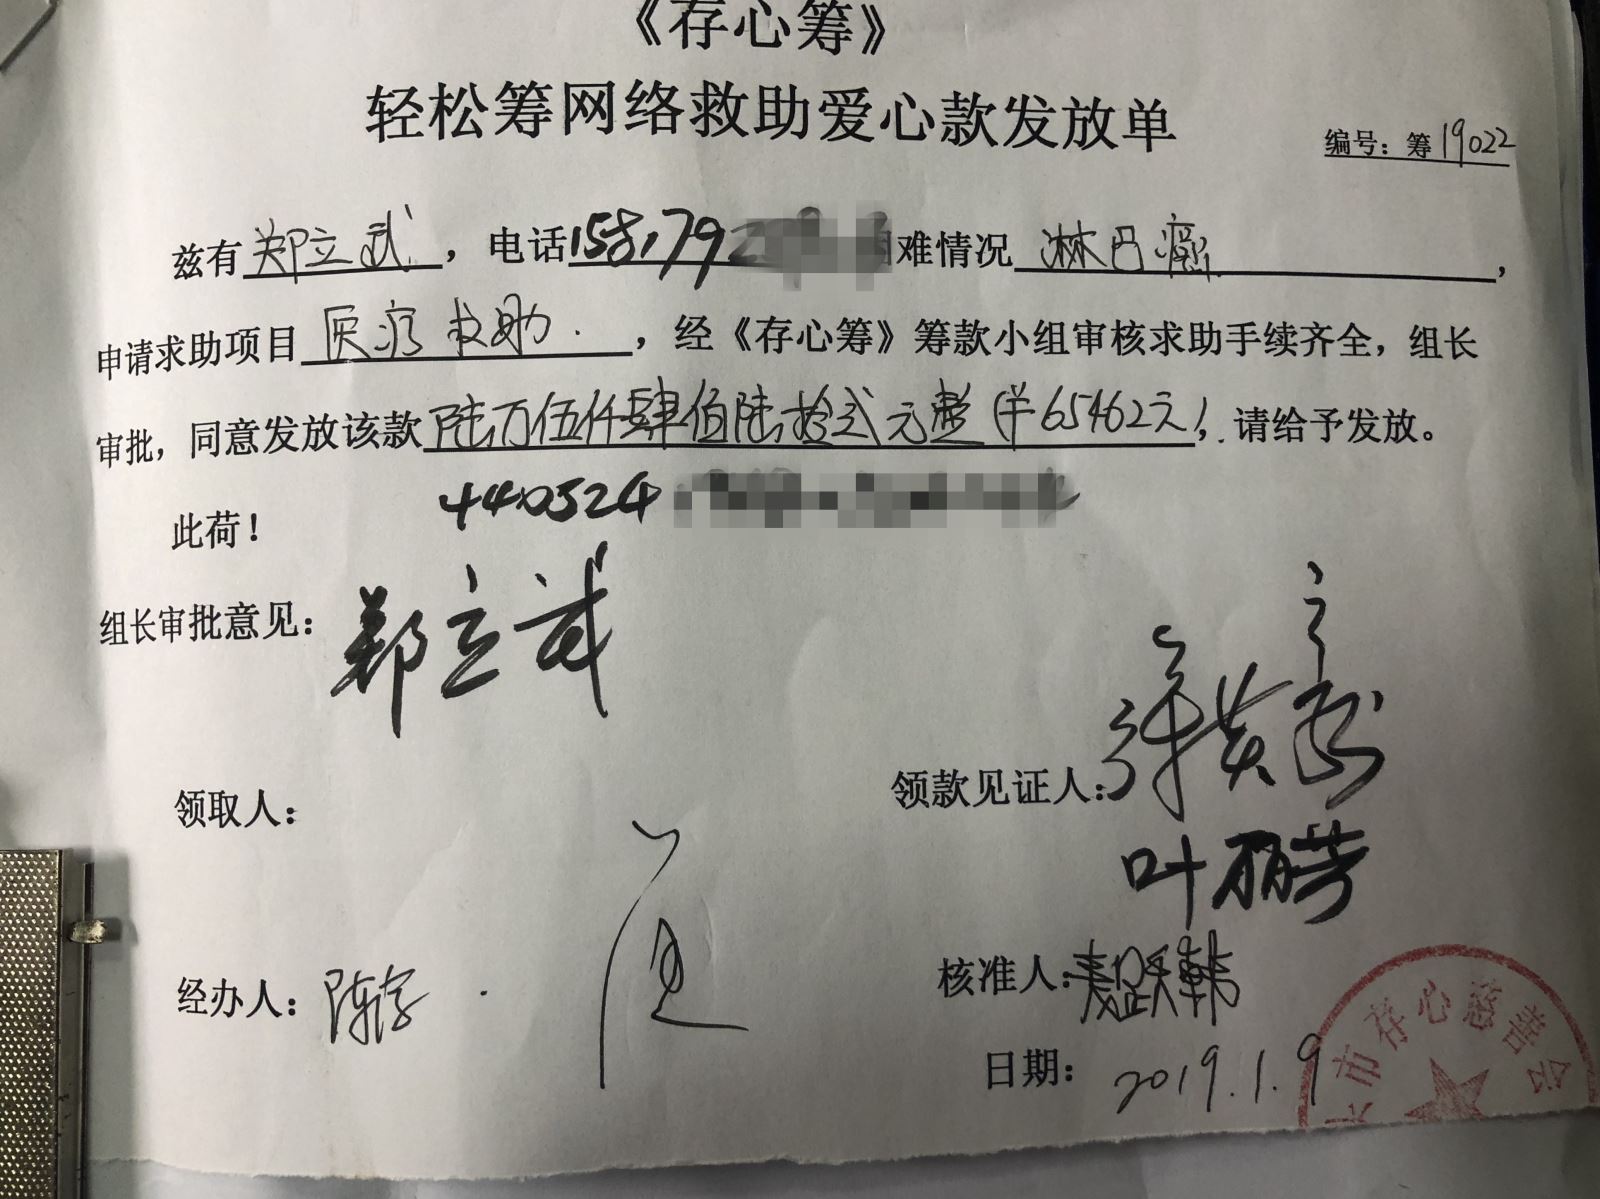 《存心筹》
轻松筹网络救助爱心款发放单
编号：筹19022
兹有郑立武，电话15817923 难情况淋巴瘤，
申请求助项目医疗救助.，经《存心筹》筹款小组审核求助手续齐全，组长
审批，同意发放该款陆万伍仟肆佰陆拾贰元整(¥65462元)，请给予发放。
此荷！
440524
组长审批意见：郑立武
领取人：
领款见证人：
叶丽芳
经办人：陈存
核准人：
日期：2019.1.9
市存心慈善会